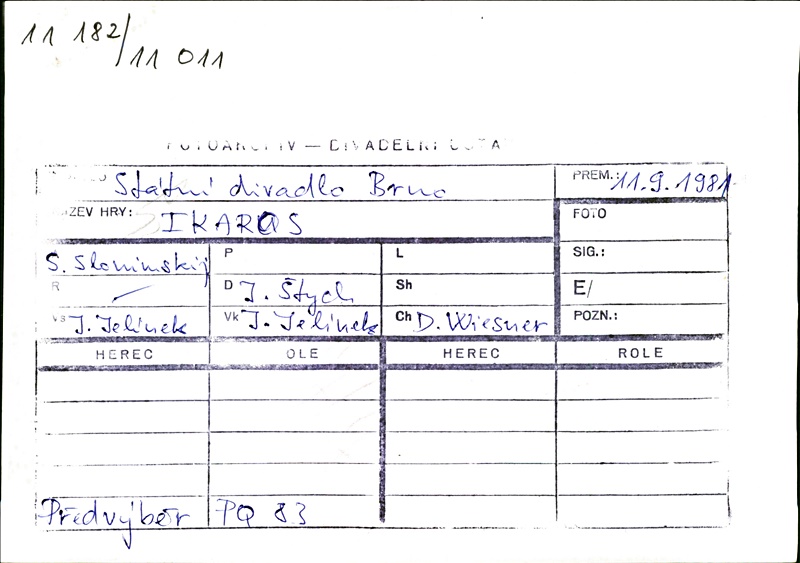 11 182/
11 011
FOTOARCHIV — DIVADELNÍ ÚSTA
Státní divadlo Brno PREM.: 11.9.1981
ZEV HRY: IKAROS FOTO
S. Slonimskij P L SIG.:
R — D J. Štych Sh E/
Vs J. Jelínek Vk J. Jelínek Ch D. Wiesner POZN.:
HEREC OLE HEREC ROLE
Předvýběr PQ 83